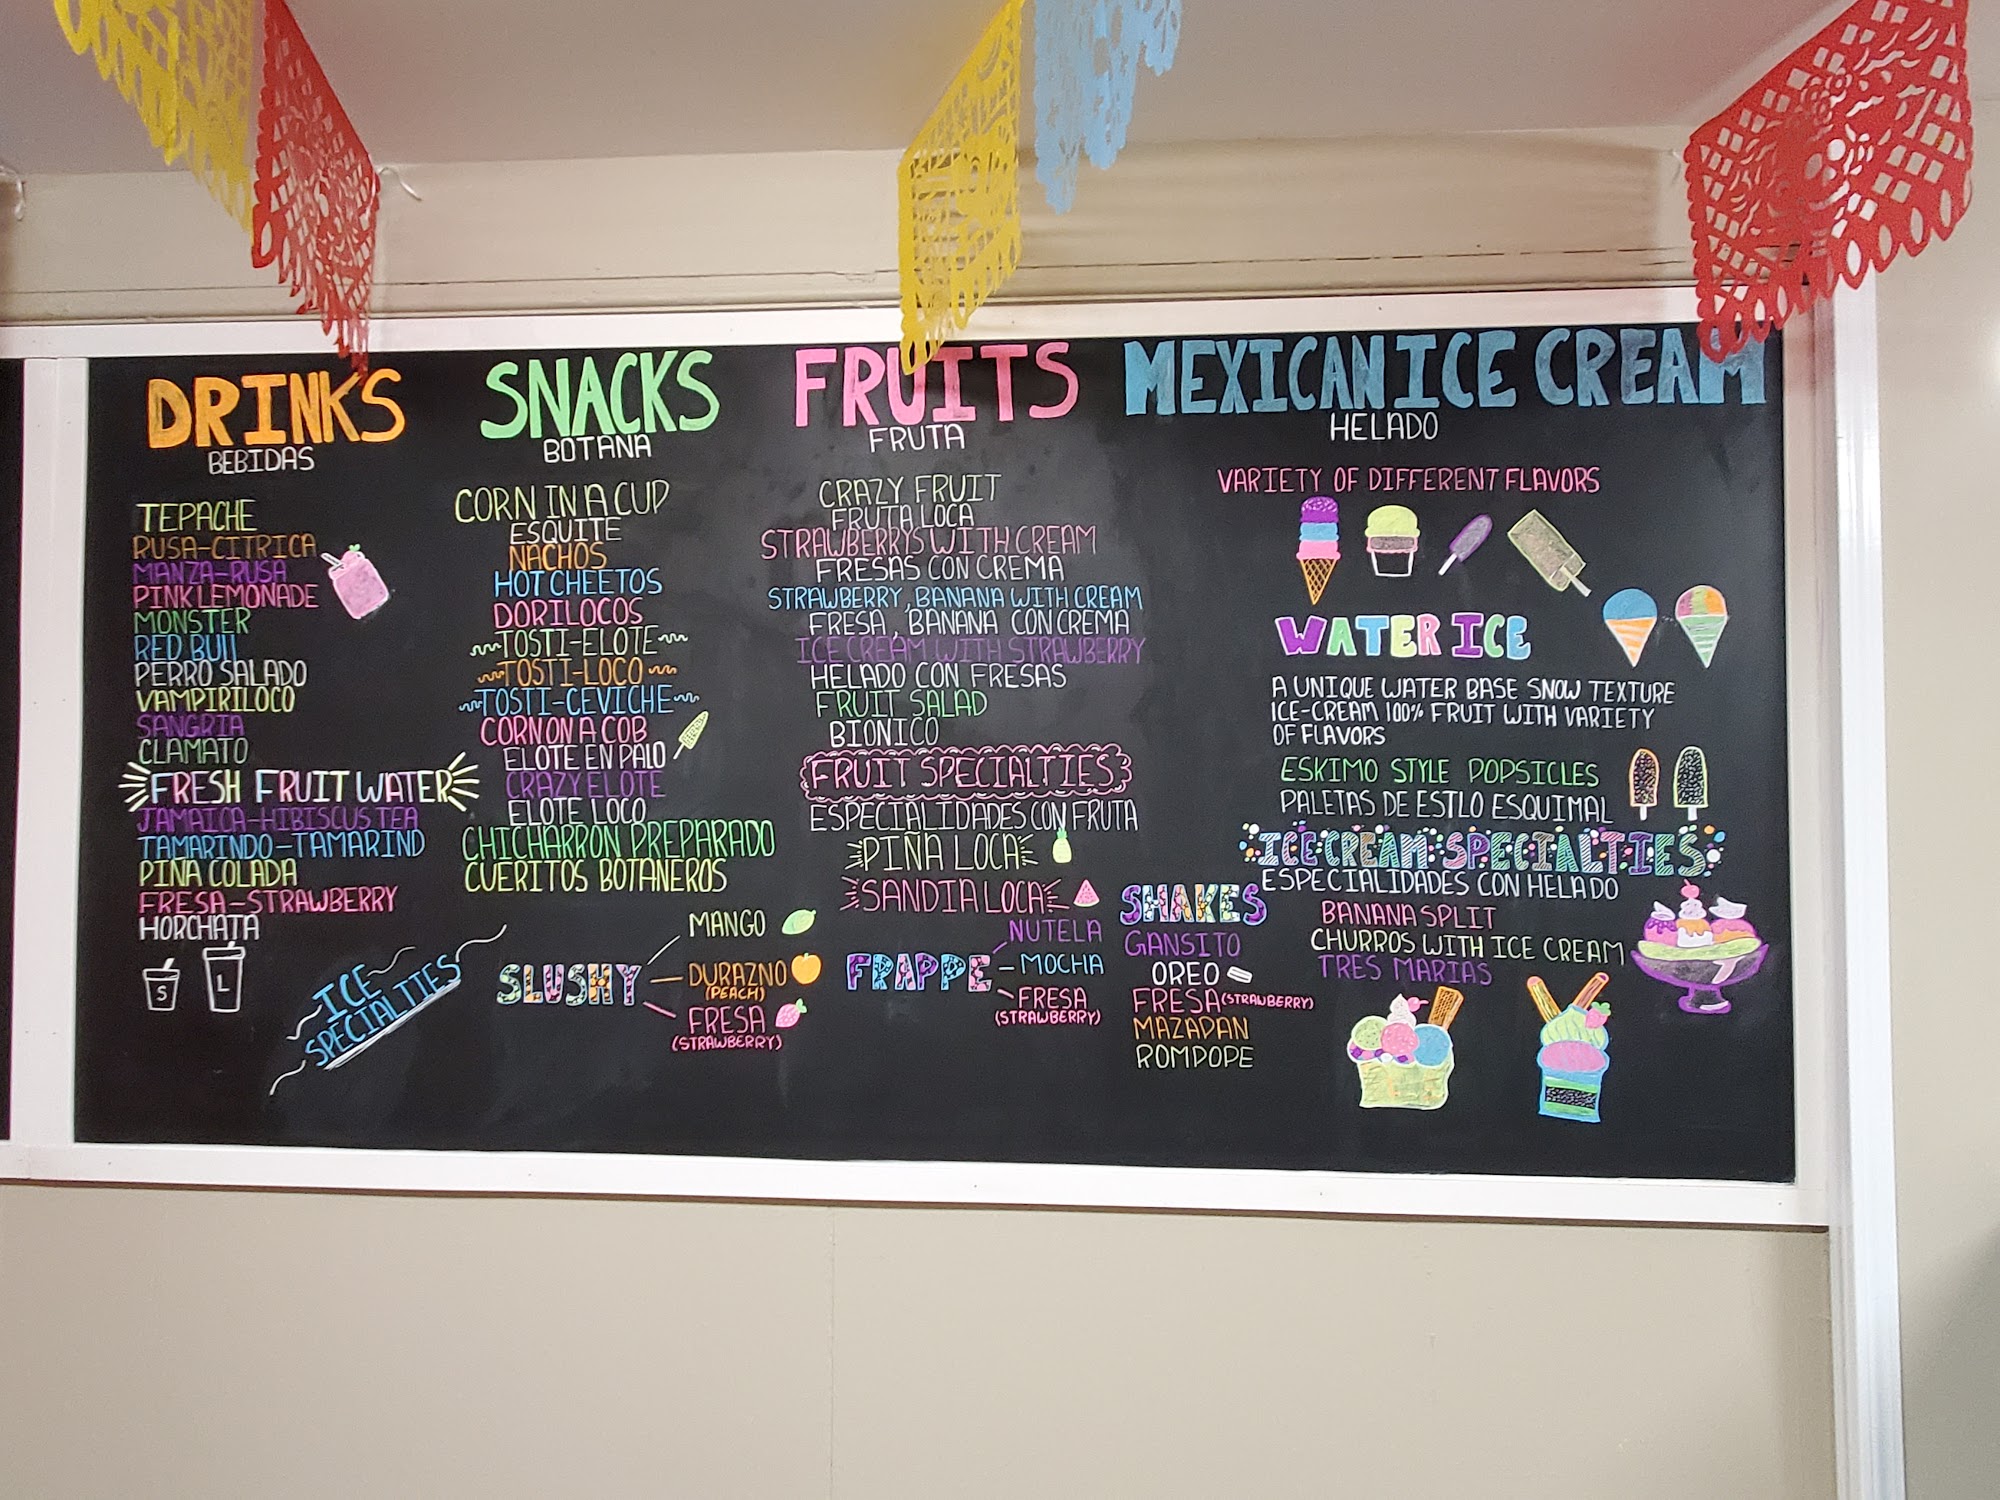 DRINKS
BEBIDAS
TEPACHE
RUSA-CITRICA
MANZA-RUSA
PINK LEMONADE
MONSTER
RED BUll
PERRO SALADO
VAMPIRILOCO
SANGRIA
CLAMATO
FRESH FRUIT WATER
JAMAICA-HIBISCUS TEA
TAMARINDO-TAMARIND
PINA COLADA
FRESA-STRAWBERRY
HORCHATA
S
L
ICE
SPECIALITIES
SNACKS
BOTANA
CORN IN A CUP
ESQUITE
NACHOS
HOT CHEETOS
DORILOCOS
TOSTI-ELOTE
TOSTI-LOCO
TOSTI-CEVICHE
CORN ON A COB
ELOTE EN PALO
CRAZY ELOTE
ELOTE LOCO
CHICHARRON PREPARADO
CUERITOS BOTANEROS
SLUSHY
MANGO
DURAZNO
(PEACH)
FRESA
(STRAWBERRY)
FRUITS
FRUTA
CRAZY FRUIT
FRUTA LOCA
STRAWBERRYS WITH CREAM
FRESAS CON CREMA
STRAWBERRY, BANANA WITH CREAM
FRESA, BANANA CON CREMA
ICE CREAM WITH STRAWBERRY
HELADO CON FRESAS
FRUIT SALAD
BIONICO
FRUIT SPECIALTIES
ESPECIALIDADES CON FRUTA
PIÑA LOCA
SANDIA LOCA
FRAPPE
NUTELA
MOCHA
FRESA
(STRAWBERRY)
MEXICAN ICE CREAM
HELADO
VARIETY OF DIFFERENT FLAVORS
WATER ICE
A UNIQUE WATER BASE SNOW TEXTURE
ICE-CREAM 100% FRUIT WITH VARIETY
OF FLAVORS
ESKIMO STYLE POPSICLES
PALETAS DE ESTLO ESQUIMAL
ICE CREAM SPECIALTIES
ESPECIALIDADES CON HELADO
BANANA SPLIT
CHURROS WITH ICE CREAM
TRES MARIAS
SHAKES
GANSITO
OREO
FRESA (STRAWBERRY)
MAZAPAN
ROMPOPE